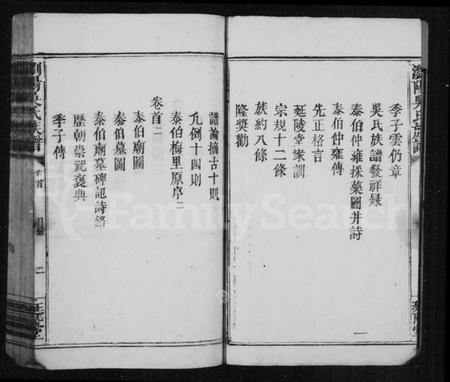 季子雲仍章
吳氏族譜發祥録
泰伯仲雍採藥圖并詩
泰伯仲雍傳
先正格言
延陵堂家訓
宗規十二條
族約八條
隆獎勸
譜論摘古十則
凡例十四則
泰伯梅里原序二
卷首二
泰伯廟圖
泰伯墓圖
泰伯廟墓碑記詩銘
歷朝崇祀褒典
季子傳
瀏陽吳氏族譜
卷首
二
FamilySearch